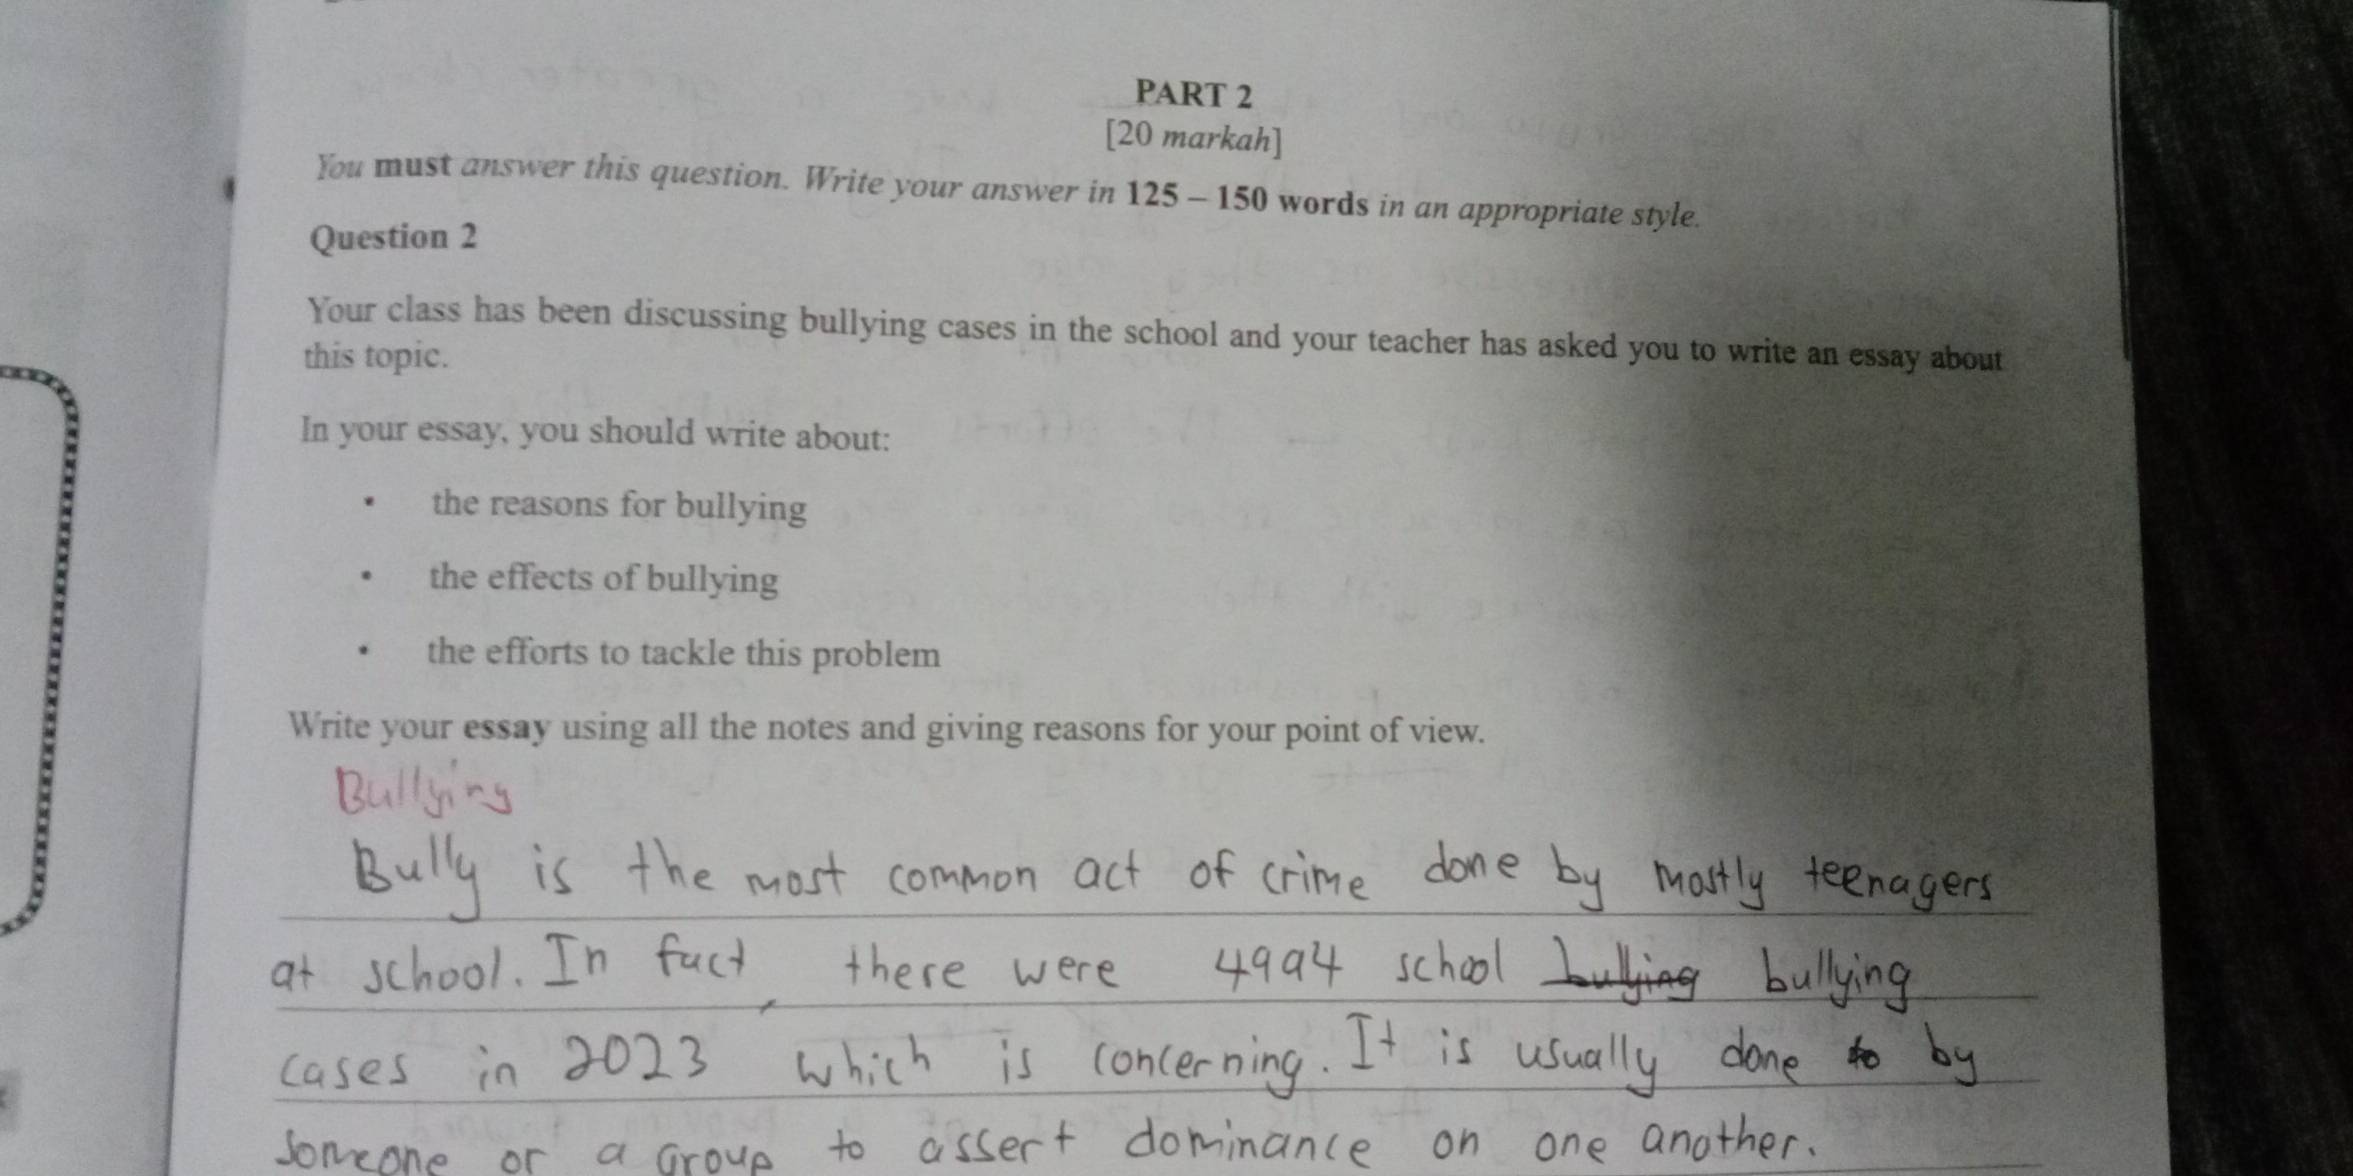 PART 2
[20 markah]
You must answer this question. Write your answer in 125 – 150 words in an appropriate style.
Question 2
Your class has been discussing bullying cases in the school and your teacher has asked you to write an essay about
this topic.
In your essay, you should write about:
• the reasons for bullying
• the effects of bullying
• the efforts to tackle this problem
Write your essay using all the notes and giving reasons for your point of view.
Bullying
Bully is the most common act of crime done by mostly teenagers
at school. In fact, there were 4994 school bullying bullying
cases in 2023 which is concerning. It is usually done to by
someone or a group to assert dominance on one another.